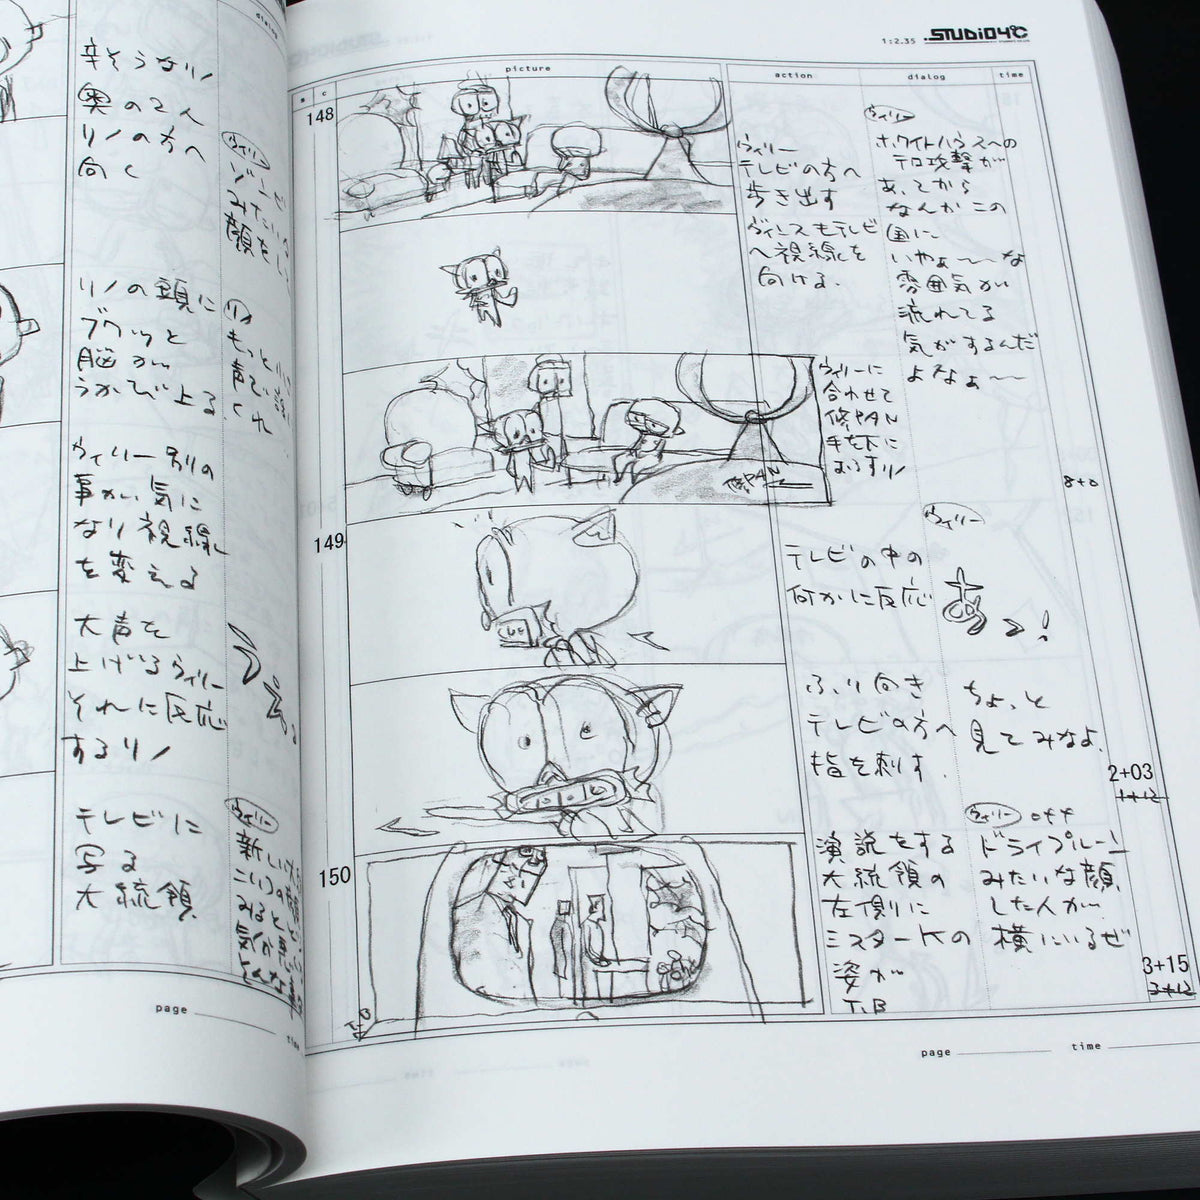 dialog
辛そうなリノ
奥の2人
リノの方へ
向く
ウィリー
ゾンビ
みたいな
顔をし
リノの頭に
ブクッと
脳が
うかび上る
リノ
もっと小
声で話
くれ
ウィリー別の
事が気に
なり視線
を変える
大声を
上げるウィリー
それに反応
するリノ
テレビに
写る
大統領
ウィリー
新しい
page
time
1:2.35 .STUDIO4℃
picture
action
dialog
time
s c
148
ウィリー
テレビの方へ
歩き出す
ダイスもテレビ
へ視線を
向ける.
ウィリー
ホワイトハウスへの
テロ攻撃が
あってから
なんかこの
国に
いやぁ〜〜な
雰囲気が
流れてる
気がするんだ
よなぁ〜〜
ウィリーに
合わせて
修PAN
手を下に
おろすリノ
修PAN
8+0
149
テレビの中の
何かに反応
ウィリー
あっ!
ふり向き
テレビの方へ
指を刺す.
ちょっと
見てみなよ.
2+03
1+12
150
演説をする
大統領の
左側に
ミスターKの
姿が
T.B
ウィリー off
ドライプルーン
みたいな顔
した人が
横にいるぜ
3+15
3+12
page
time